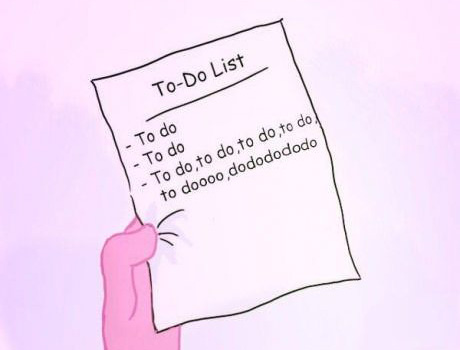 To-Do List
- To do
- To do
- To do,to do,to do,to do,
to doooo,dododododo